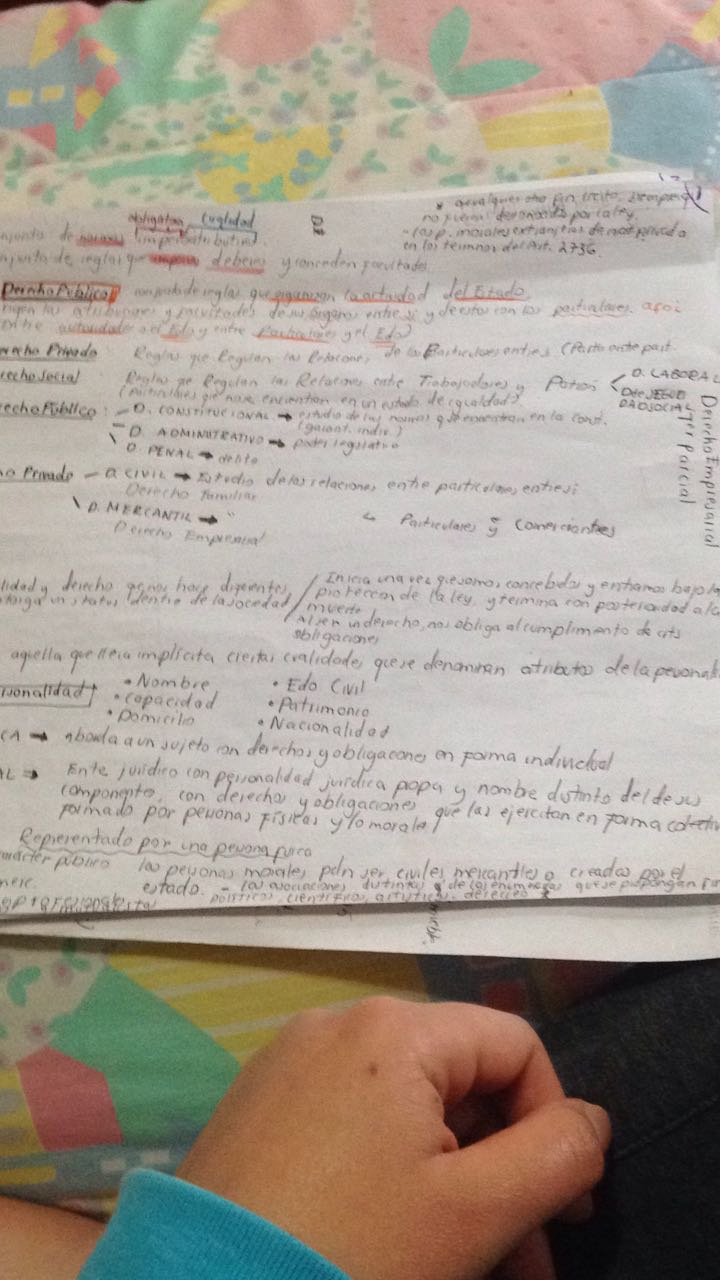 * qcualquier otro fin licito, siempre q
no fueran desconocidos por la ley.
- los p. morales extranjeras de nat privada
en los terminos del Art. 2736.
obligatan bilateralidad
njunto de normas imperoatributivas.
njunto de reglas que impone deberes y conceden facultades
Derecho Público conjunto de reglas que organizan la actividad del Estado,
rigen las atribuciones y facultades de sus órganos entre sí y de estos con los particulares.
entre autoridades o el Edo y entre Particulares y el Edo)
erecho Privado: Reglas que Regulan las Relaciones de los Particulares entre si (Part. ante part.
erecho Social Reglas qe Regulan las Relaciones entre Trabajadores y Patron
D. LABORAL
(Particulares que no se encuentran en un estado de igualdad)
DAD SOCIAL
erecho Público: - D. CONSTITUCIONAL → estudio de las normas que encuentran en la const.
(garant. indiv.)
D. ADMINISTRATIVO → poder legislativo
D. PENAL → delito
ho Privado - D. CIVIL → Estudio de las relaciones entre particulares entre si
Derecho Familiar
D. MERCANTIL → " Particulares y Comerciantes
Derecho Empresarial
Derecho Empresarial
1er parcial
lidad y derecho qe nos hace diferentes,
otorga un status, dentro de la sociedad
Inicia una vez qe somos concebidos y entramos bajo la
proteccion de la ley, y termina con posterioridad a la
muerte
Al ser un derecho, nos obliga al cumplimento de
obligaciones
aquella que lleva implícita ciertas cualidades que se denominan atributos de la personali
rsonalidad
• Nombre • Edo Civil
• Capacidad • Patrimonio
• Domicilio • Nacionalidad
CA → aborda a un sujeto con derechos y obligaciones en forma individual
AL → Ente jurídico con personalidad jurídica propia y nombre distinto del de sus
componentes, con derechos y obligaciones que las ejercitan en forma colectiva
formado por personas físicas y/o morales
Representado por una persona física
carácter público las personas morales pdn ser civiles mercantiles o creadas por el
merc. estado. - las asociaciones distintas de las enumeradas que se propongan fin
politicos, cientificos, artisticos,